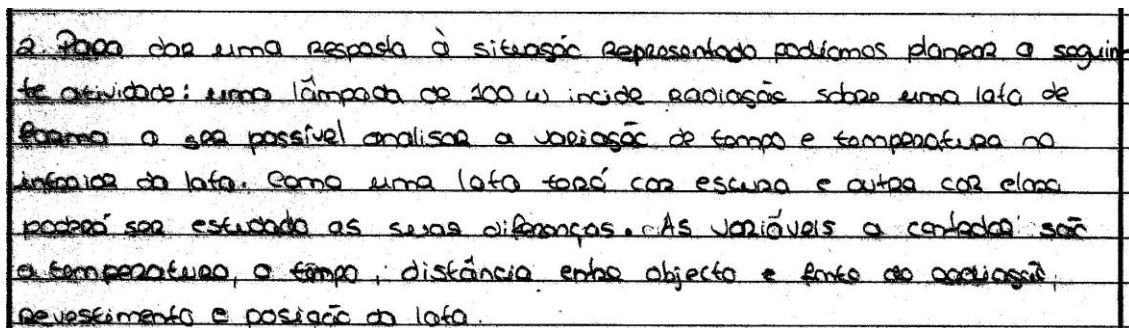 2. Para dar uma resposta à situasão Representada podíamos planear a seguin
te atividade: uma lâmpada de 100 w incide Radiasão sobre uma lata de
forma a ser possível analisar a variasão de tempo e temperatura no
interior da lata. Como uma lata terá cor escura e outra cor clara
poderá ser estudado as suas diferenças. As variáveis a controlar são
a temperatura, o tempo, distância entre objecto e fonte de radiasão,
revestimento e posição da lata.